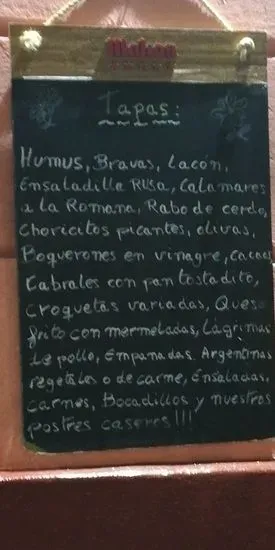 Mahou
Tapas:
Humus, Bravas, Lacón,
Ensaladilla Rusa, Calamares
a la Romana, Rabo de cerdo,
Choricitos picantes, olivas,
Boquerones en vinagre,
Cabrales con pan tostadito,
croquetas variadas, Queso
frito con mermeladas, Lágrimas
de pollo, Empanadas Argentinas
vegetales o de carne, Ensaladas,
carnes, Bocadillos y nuestros
postres caseros!!!